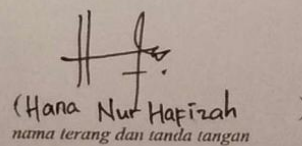 (Hana Nur Hafizah
nama terang dan tanda tangan